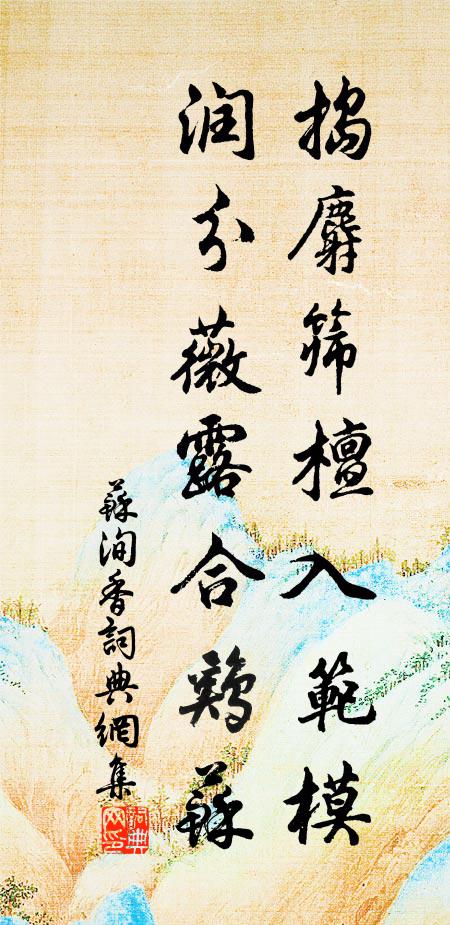 搗麝篩檀入範模
润分薇露合鷄蘇
蘇洵香詞典網集
詞典